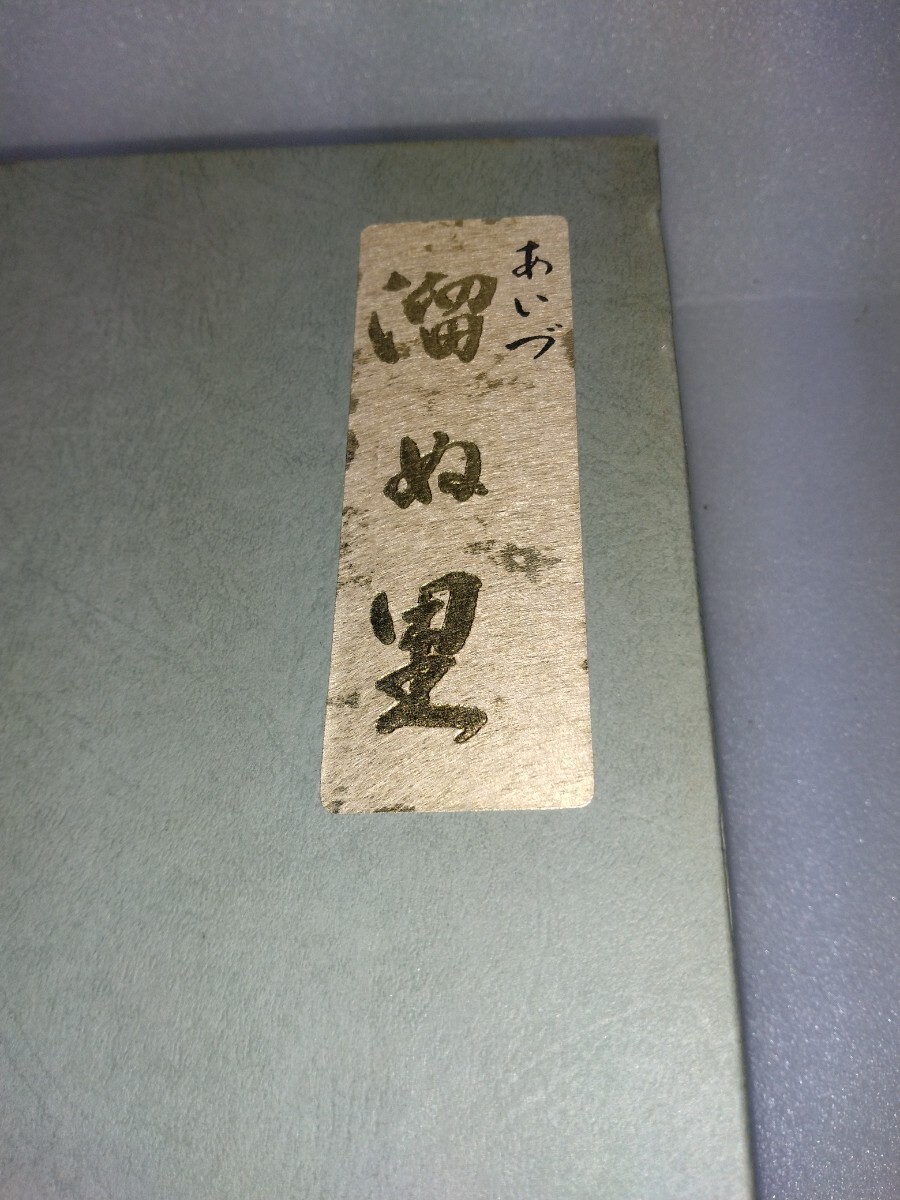 あいづ
溜ぬ里